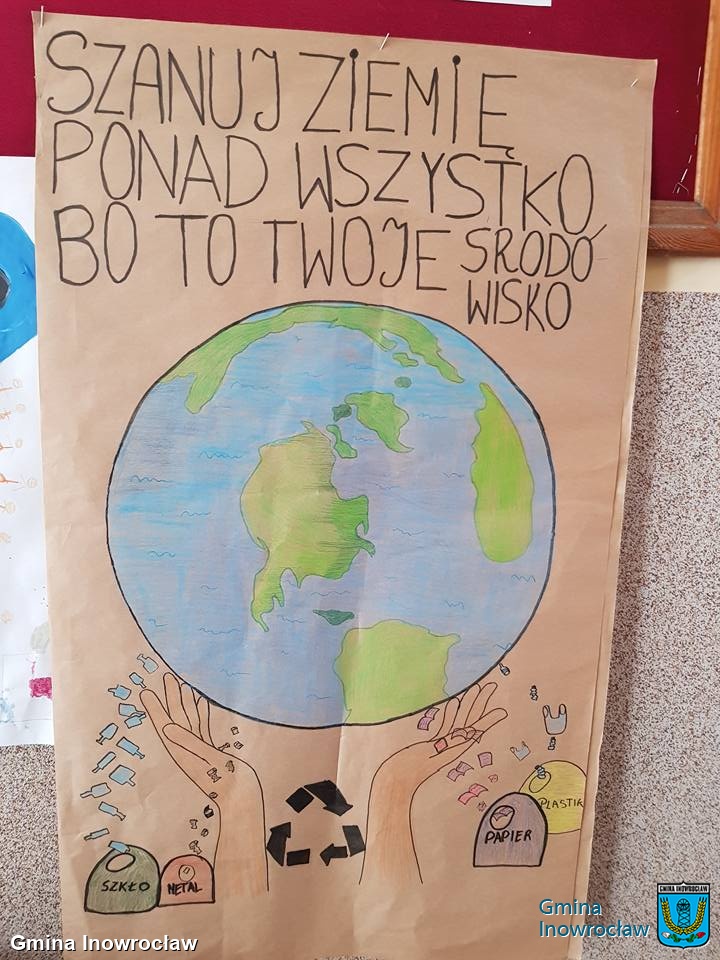 SZANUJ ZIEMIĘ
PONAD WSZYSTKO,
BO TO TWOJE ŚRODO
WISKO
PLASTIK
PAPIER
SZKŁO
METAL
Gmina
Inowrocław
GMINA INOWROCŁAW
Gmina Inowrocław